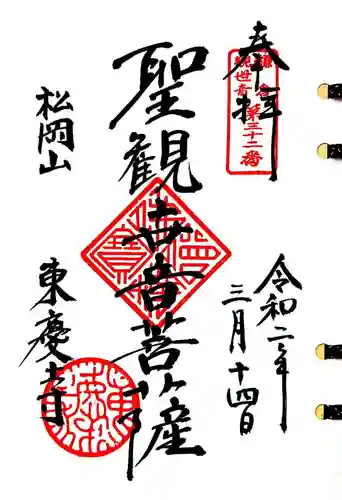 奉拝
鎌倉
観世音
第三十二番
令和二年
三月十四日
聖観世音菩薩
佛法僧寶
松岡山
東慶寺